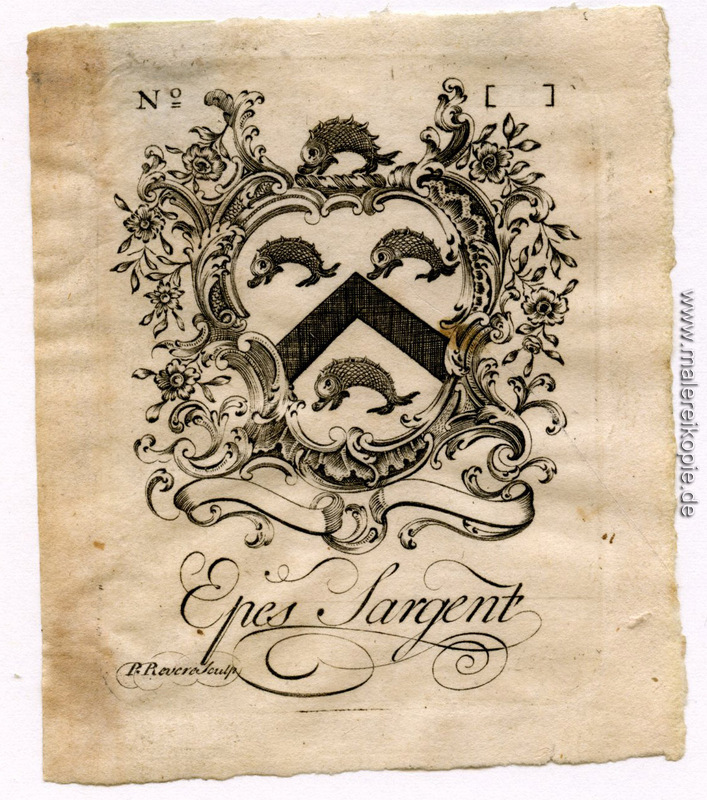 Nº [ ]
Epes Sargent
P. Revere Sculp
www.malereikopie.de